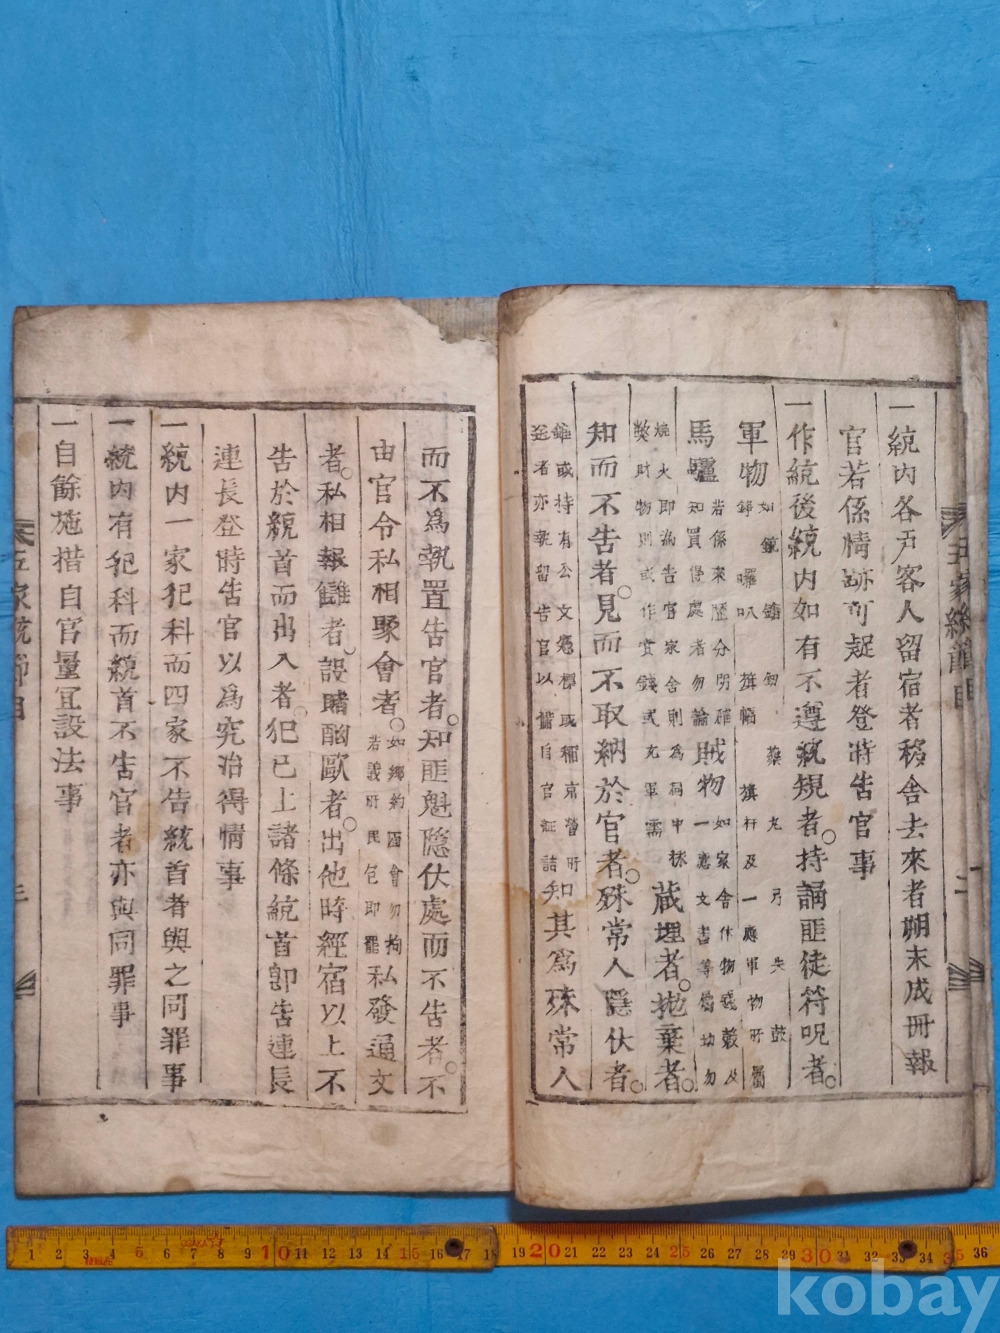 一統內各戶客人留宿者移舍去來者朔末成冊報
官若係情跡可疑者登時告官事
一作統後統內如有不遵統規者持誦匪徒符呪者
軍物
如銃鎗釰藥丸弓矢鼓
錚囉叭旗幟旗杆及一應軍物所屬
馬驢
若係來歷分明確
知買得處者勿論
賊物
如家舍什物錢穀及
一應文書等屬切勿
燒火卽爲告官家舍則爲洞中
獘財物則或作賞錢或充軍需
藏埋者抛棄者
知而不告者見而不取納於官者殊常人隱伏者
雖或持有公文憑標或稱京營所
者亦執留告官以
自官
詰
知其爲殊常人
而不爲執置告官者知匪魁隱伏處而不告者不
由官令私相聚會者
如鄉約酒會勿拘
若義所民包卽罷
私發通文
者私相報讎者設賭酗歐者出他時經宿以上不
告於統首而出入者犯已上諸條統首卽告連長
連長登時告官以爲究治得情事
一統內一家犯科而四家不告統首者與之同罪事
一統內有犯科而統首不告官者亦與同罪事
一自餘施措自官量宜設法事
五家統節目
二
五家統節目
三
1 2 3 4 5 6 7 8 9 10 11 12 13 14 15 16 17 18 19 20 21 22 23 24 25 26 27 28 29 30 31 32 33 34 35 36
kobay